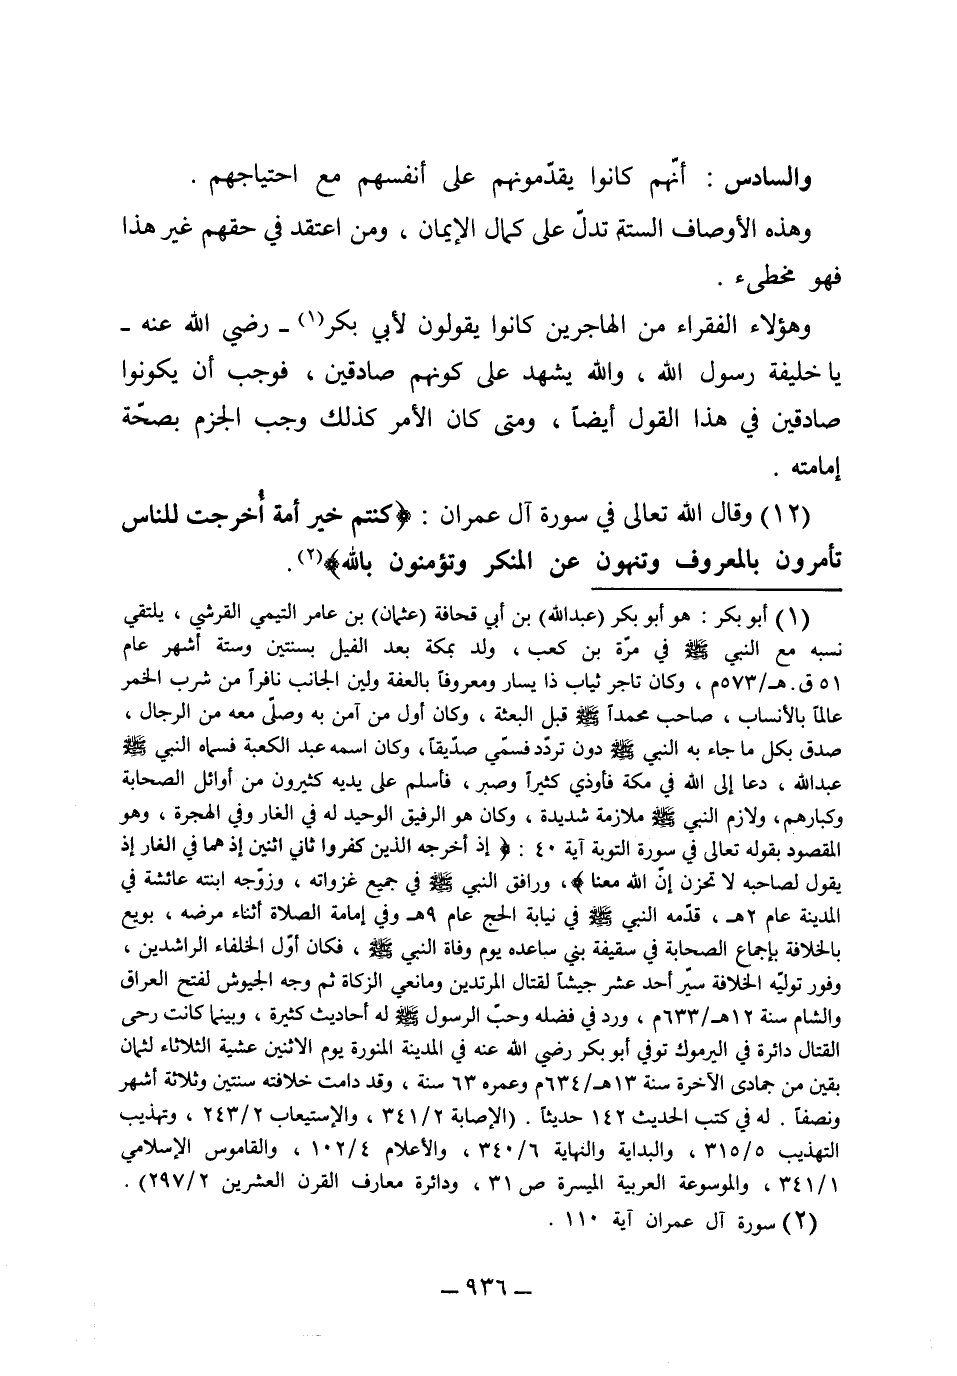 والسادس : أنّهم كانوا يقدّمونهم على أنفسهم مع احتياجهم .
وهذه الأوصاف الستة تدلّ على كمال الإيمان ، ومن اعتقد في حقهم غير هذا
فهو مخطىء .
وهؤلاء الفقراء من المهاجرين كانوا يقولون لأبي بكر(١) ـ رضي الله عنه ـ
يا خليفة رسول الله ، والله يشهد على كونهم صادقين ، فوجب أن يكونوا
صادقين في هذا القول أيضاً ، ومتى كان الأمر كذلك وجب الجزم بصحّة
إمامته .
(١٢) وقال الله تعالى في سورة آل عمران : ﴿كنتم خير أمة أُخرجت للناس
تأمرون بالمعروف وتنهون عن المنكر وتؤمنون بالله﴾(٢) .
(١) أبو بكر : هو أبو بكر (عبدالله) بن أبي قحافة (عثمان) بن عامر التيمي القرشي ، يلتقي
نسبه مع النبي ﷺ في مرّة بن كعب ، ولد بمكة بعد الفيل بسنتين وستة أشهر عام
٥١ ق.هـ/٥٧٣م ، وكان تاجر ثياب ذا يسار ومعروفاً بالعفة ولين الجانب نافراً من شرب الخمر
عالماً بالأنساب ، صاحب محمداً ﷺ قبل البعثة ، وكان أول من آمن به وصلّى معه من الرجال ،
صدق بكل ما جاء به النبي ﷺ دون تردّد فسمّي صدّيقاً ، وكان اسمه عبد الكعبة فسماه النبي ﷺ
عبدالله ، دعا إلى الله في مكة فأوذي كثيراً وصبر ، فأسلم على يديه كثيرون من أوائل الصحابة
وكبارهم ، ولازم النبي ﷺ ملازمة شديدة ، وكان هو الرفيق الوحيد له في الغار وفي الهجرة ، وهو
المقصود بقوله تعالى في سورة التوبة آية ٤٠ : ﴿ إذ أخرجه الذين كفروا ثاني اثنين إذ هما في الغار إذ
يقول لصاحبه لا تحزن إنّ الله معنا ﴾، ورافق النبي ﷺ في جميع غزواته ، وزوّجه ابنته عائشة في
المدينة عام ٢هـ ، قدّمه النبي ﷺ في نيابة الحج عام ٩هـ وفي إمامة الصلاة أثناء مرضه ، بويع
بالخلافة بإجماع الصحابة في سقيفة بني ساعده يوم وفاة النبي ﷺ ، فكان أوّل الخلفاء الراشدين ،
وفور توليّه الخلافة سيّر أحد عشر جيشاً لقتال المرتدين ومانعي الزكاة ثم وجه الجيوش لفتح العراق
والشام سنة ١٢هـ/٦٣٣م ، ورد في فضله وحبّ الرسول ﷺ له أحاديث كثيرة ، وبينما كانت رحى
القتال دائرة في اليرموك توفي أبو بكر رضي الله عنه في المدينة المنورة يوم الاثنين عشية الثلاثاء لثمان
بقين من جمادى الآخرة سنة ١٣هـ/٦٣٤م وعمره ٦٣ سنة ، وقد دامت خلافته سنتين وثلاثة أشهر
ونصفاً . له في كتب الحديث ١٤٢ حديثاً . (الإصابة ٣٤١/٢ ، والإستيعاب ٢٤٣/٢ ، وتهذيب
التهذيب ٣١٥/٥ ، والبداية والنهاية ٣٤٠/٦ ، والأعلام ١٠٢/٤ ، والقاموس الإسلامي
٣٤١/١ ، والموسوعة العربية الميسرة ص ٣١ ، ودائرة معارف القرن العشرين ٢٩٧/٢) .
(٢) سورة آل عمران آية ١١٠ .
ـ ٩٣٦ ـ